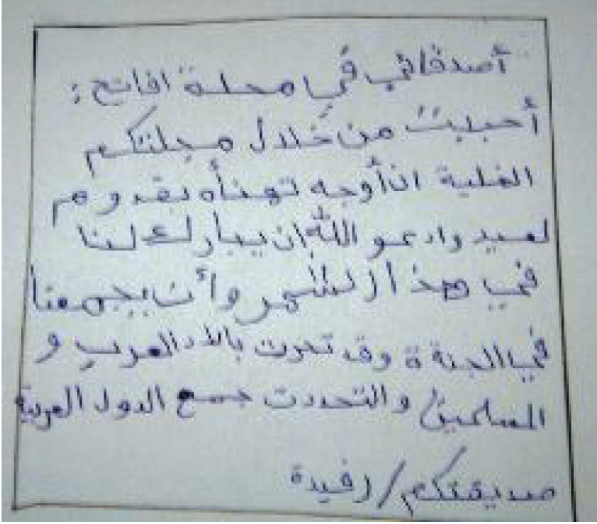 أصدقائي في مجلة افاتح :
أحببت من خلال مجلتكم
الغلية ان أوجه تهنأه بقدوهم
لعيد وادعو الله ان يبارك لنا
في هذا الشهر وأن يجمعنا
في الجنة ة وقد تحرت بالدالعرب و
المسلمين والتحددت جمع الدول العربية
صديقتكم / رفيدة